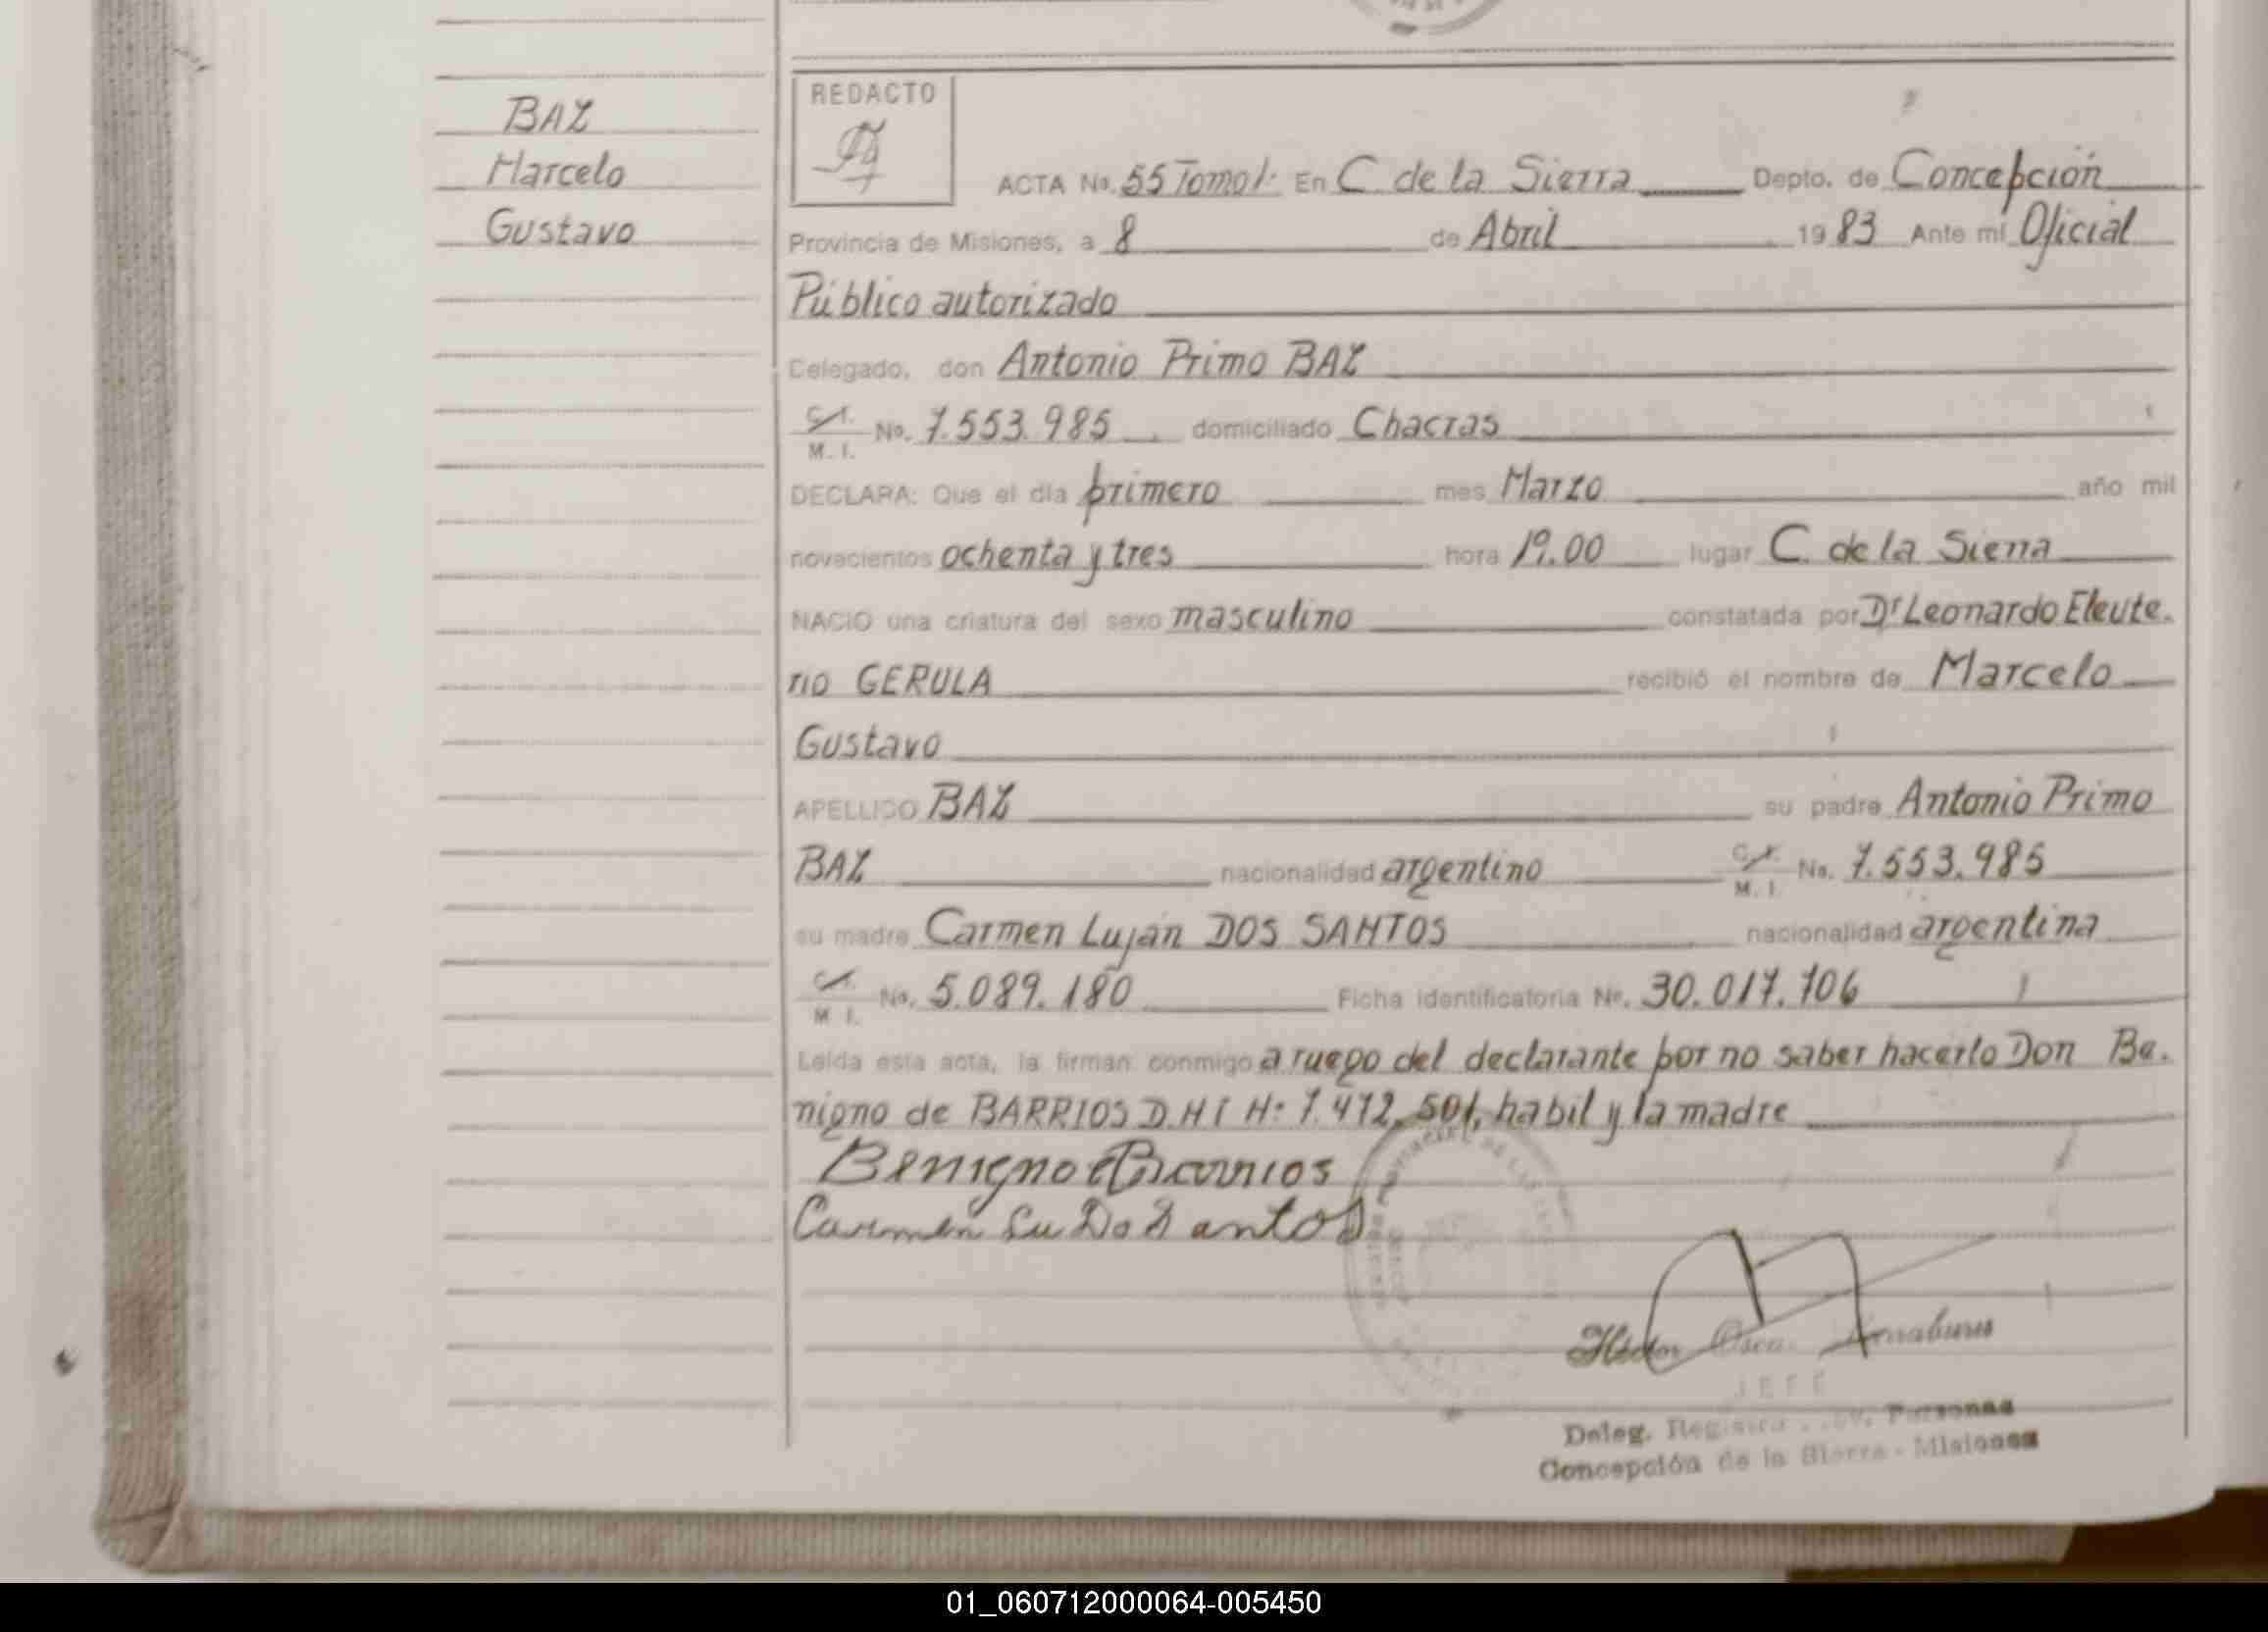 BAZ
Marcelo
Gustavo
REDACTO
ACTA No. 55 Tomo I. En C. de la Sierra Depto. de Concepción
Provincia de Misiones, a 8 de Abril 1983 Ante mí Oficial
Público autorizado
Delegado, don Antonio Primo BAZ
C.I. M. I. No. 7.553.985 domiciliado Chacras
DECLARA: Que el día primero mes Marzo año mil
novecientos ochenta y tres hora 19.00 lugar C. de la Sierra
NACIO una criatura del sexo masculino constatada por Dr Leonardo Eleute-
rio GERULA recibió el nombre de Marcelo
Gustavo
APELLIDO BAZ su padre Antonio Primo
BAZ nacionalidad argentino C.I. M. I. No. 7.553.985
su madre Carmen Luján DOS SANTOS nacionalidad argentina
C.I. M. I. No. 5.089.180 Ficha Identificatoria No. 30.017.706
Leída esta acta, la firman conmigo a ruego del declarante por no saber hacerlo Don Be-
nigno de BARRIOS D.N I N: 7.472.501, habil y la madre
Benigno de Barrios
Carmen Lu Do Santos
JEFE
Deleg. Personas
Concepción de la Sierra - Misiones
01_060712000064-005450